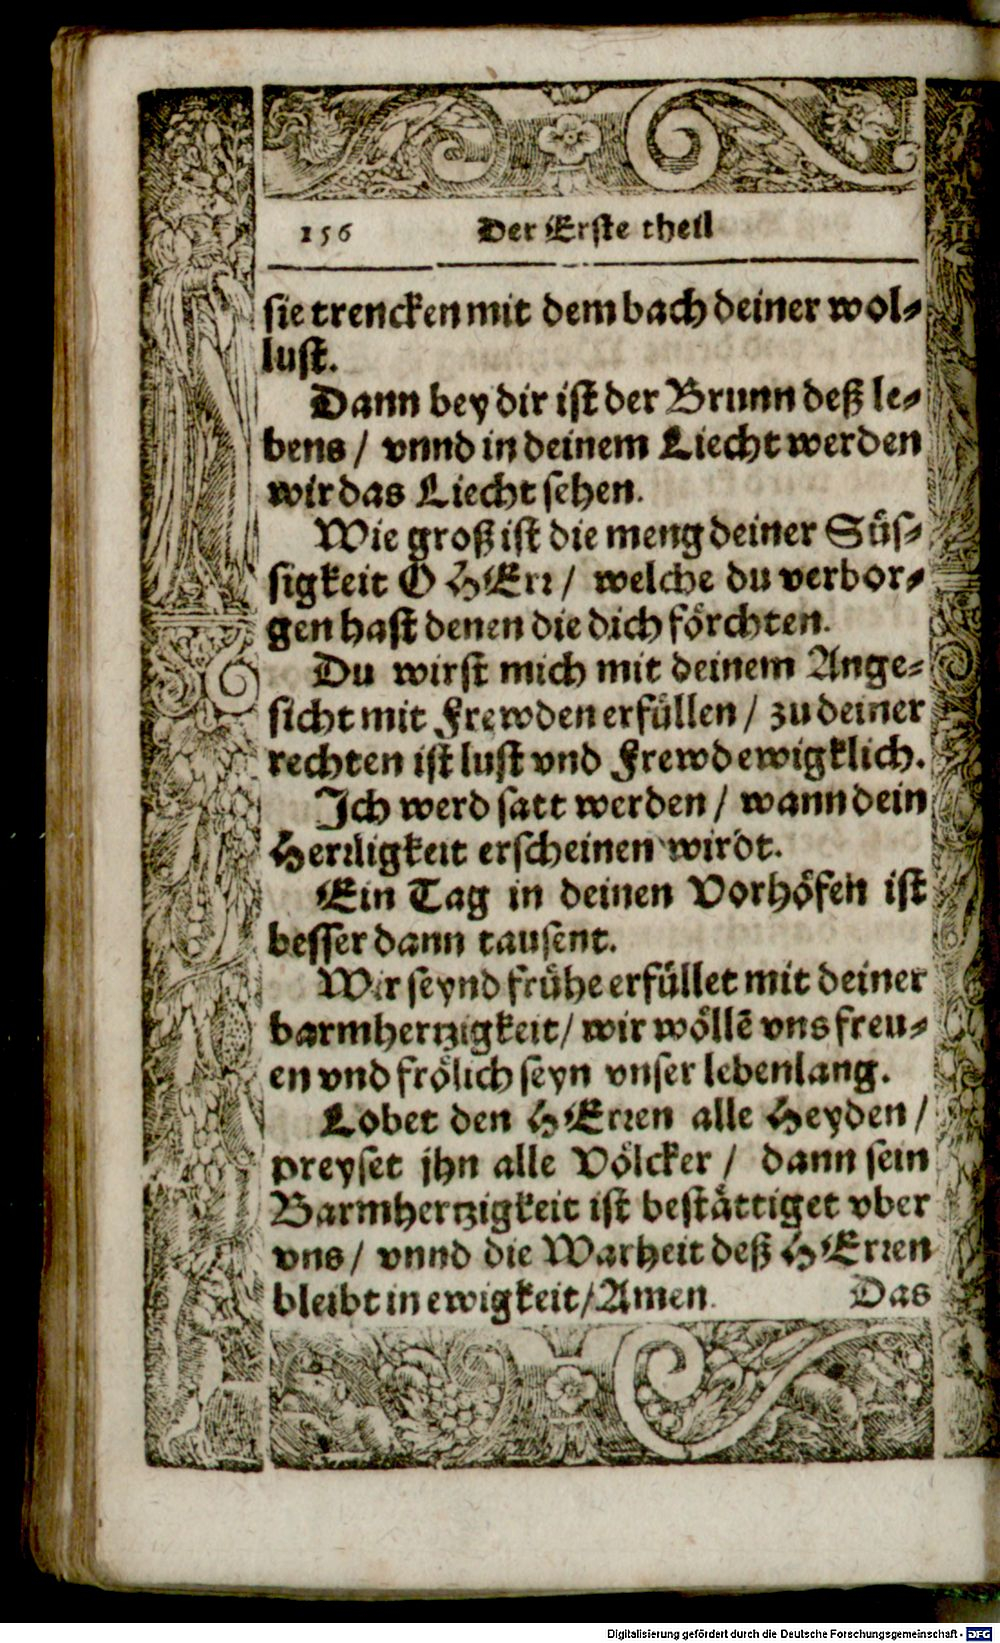 156 Der Erste theil
sie trencken mit dem bach deiner wol-
lust.
Dann bey dir ist der Brunn deß le-
bens / vnnd in deinem Liecht werden
wir das Liecht sehen.
Wie groß ist die meng deiner Süs-
sigkeit O HErr / welche du verbor-
gen hast denen die dich förchten.
Du wirst mich mit deinem Ange-
sicht mit Frewden erfüllen / zu deiner
rechten ist lust vnd Frewd ewigklich.
Ich werd satt werden / wann dein
Herrligkeit erscheinen wirdt.
Ein Tag in deinen Vorhöfen ist
besser dann tausent.
Wir seynd frühe erfüllet mit deiner
barmhertzigkeit / wir wöllē vns freu-
en vnd frölich seyn vnser lebenlang.
Lobet den HErren alle Heyden /
preyset jhn alle Völcker / dann sein
Barmhertzigkeit ist bestättiget vber
vns / vnnd die Warheit deß HErren
bleibt in ewigkeit / Amen. Das
Digitalisierung gefördert durch die Deutsche Forschungsgemeinschaft - DFG